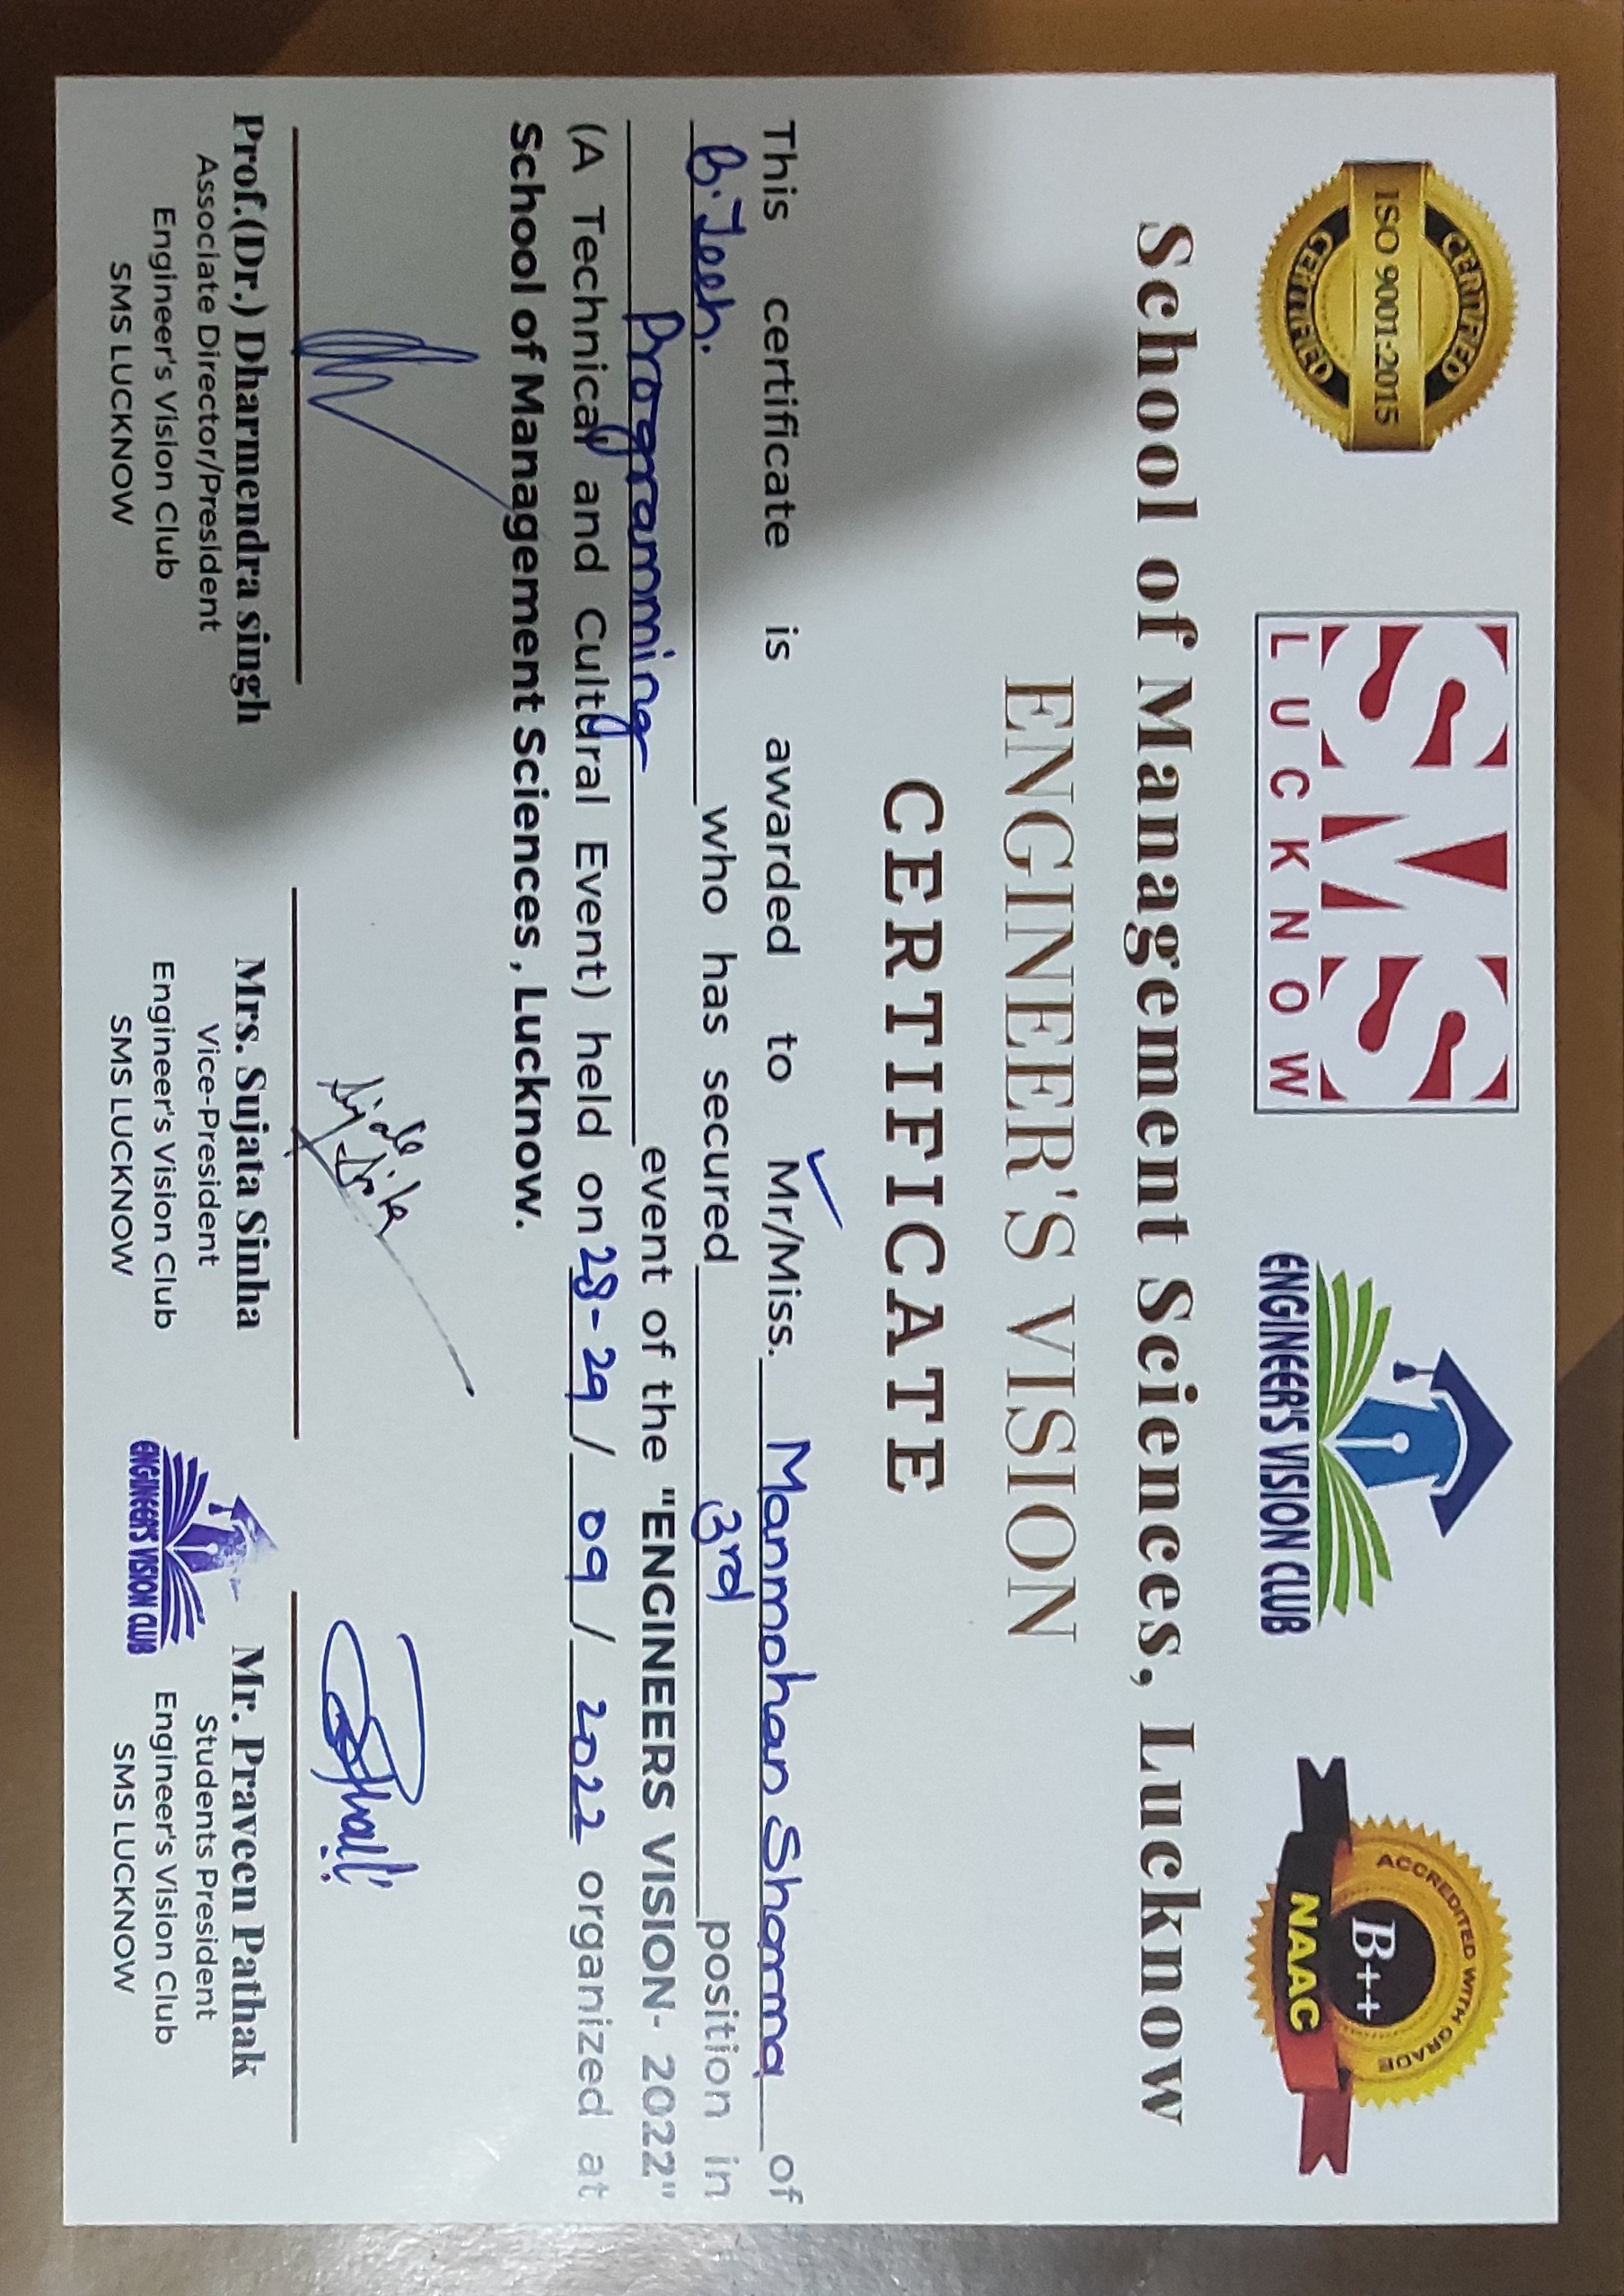 CERTIFIED
ISO 9001:2015
CERTIFIED
SMS
LUCKNOW
ENGINEER'S VISION CLUB
ACCREDITED WITH GRADE
B++
NAAC
School of Management Sciences, Lucknow
ENGINEER'S VISION
CERTIFICATE
This certificate is awarded to Mr/Miss. Manmohan Sharma of
B.Tech. who has secured 3rd position in
Programming event of the "ENGINEERS VISION- 2022"
(A Technical and Cultural Event) held on 28-29 / 09 / 2022 organized at
School of Management Sciences , Lucknow.
Sujata
Sinha
Prof.(Dr.) Dharmendra singh
Associate Director/President
Engineer's Vision Club
SMS LUCKNOW
Mrs. Sujata Sinha
Vice-President
Engineer's Vision Club
SMS LUCKNOW
ENGINEER'S VISION CLUB
Mr. Praveen Pathak
Students President
Engineer's Vision Club
SMS LUCKNOW